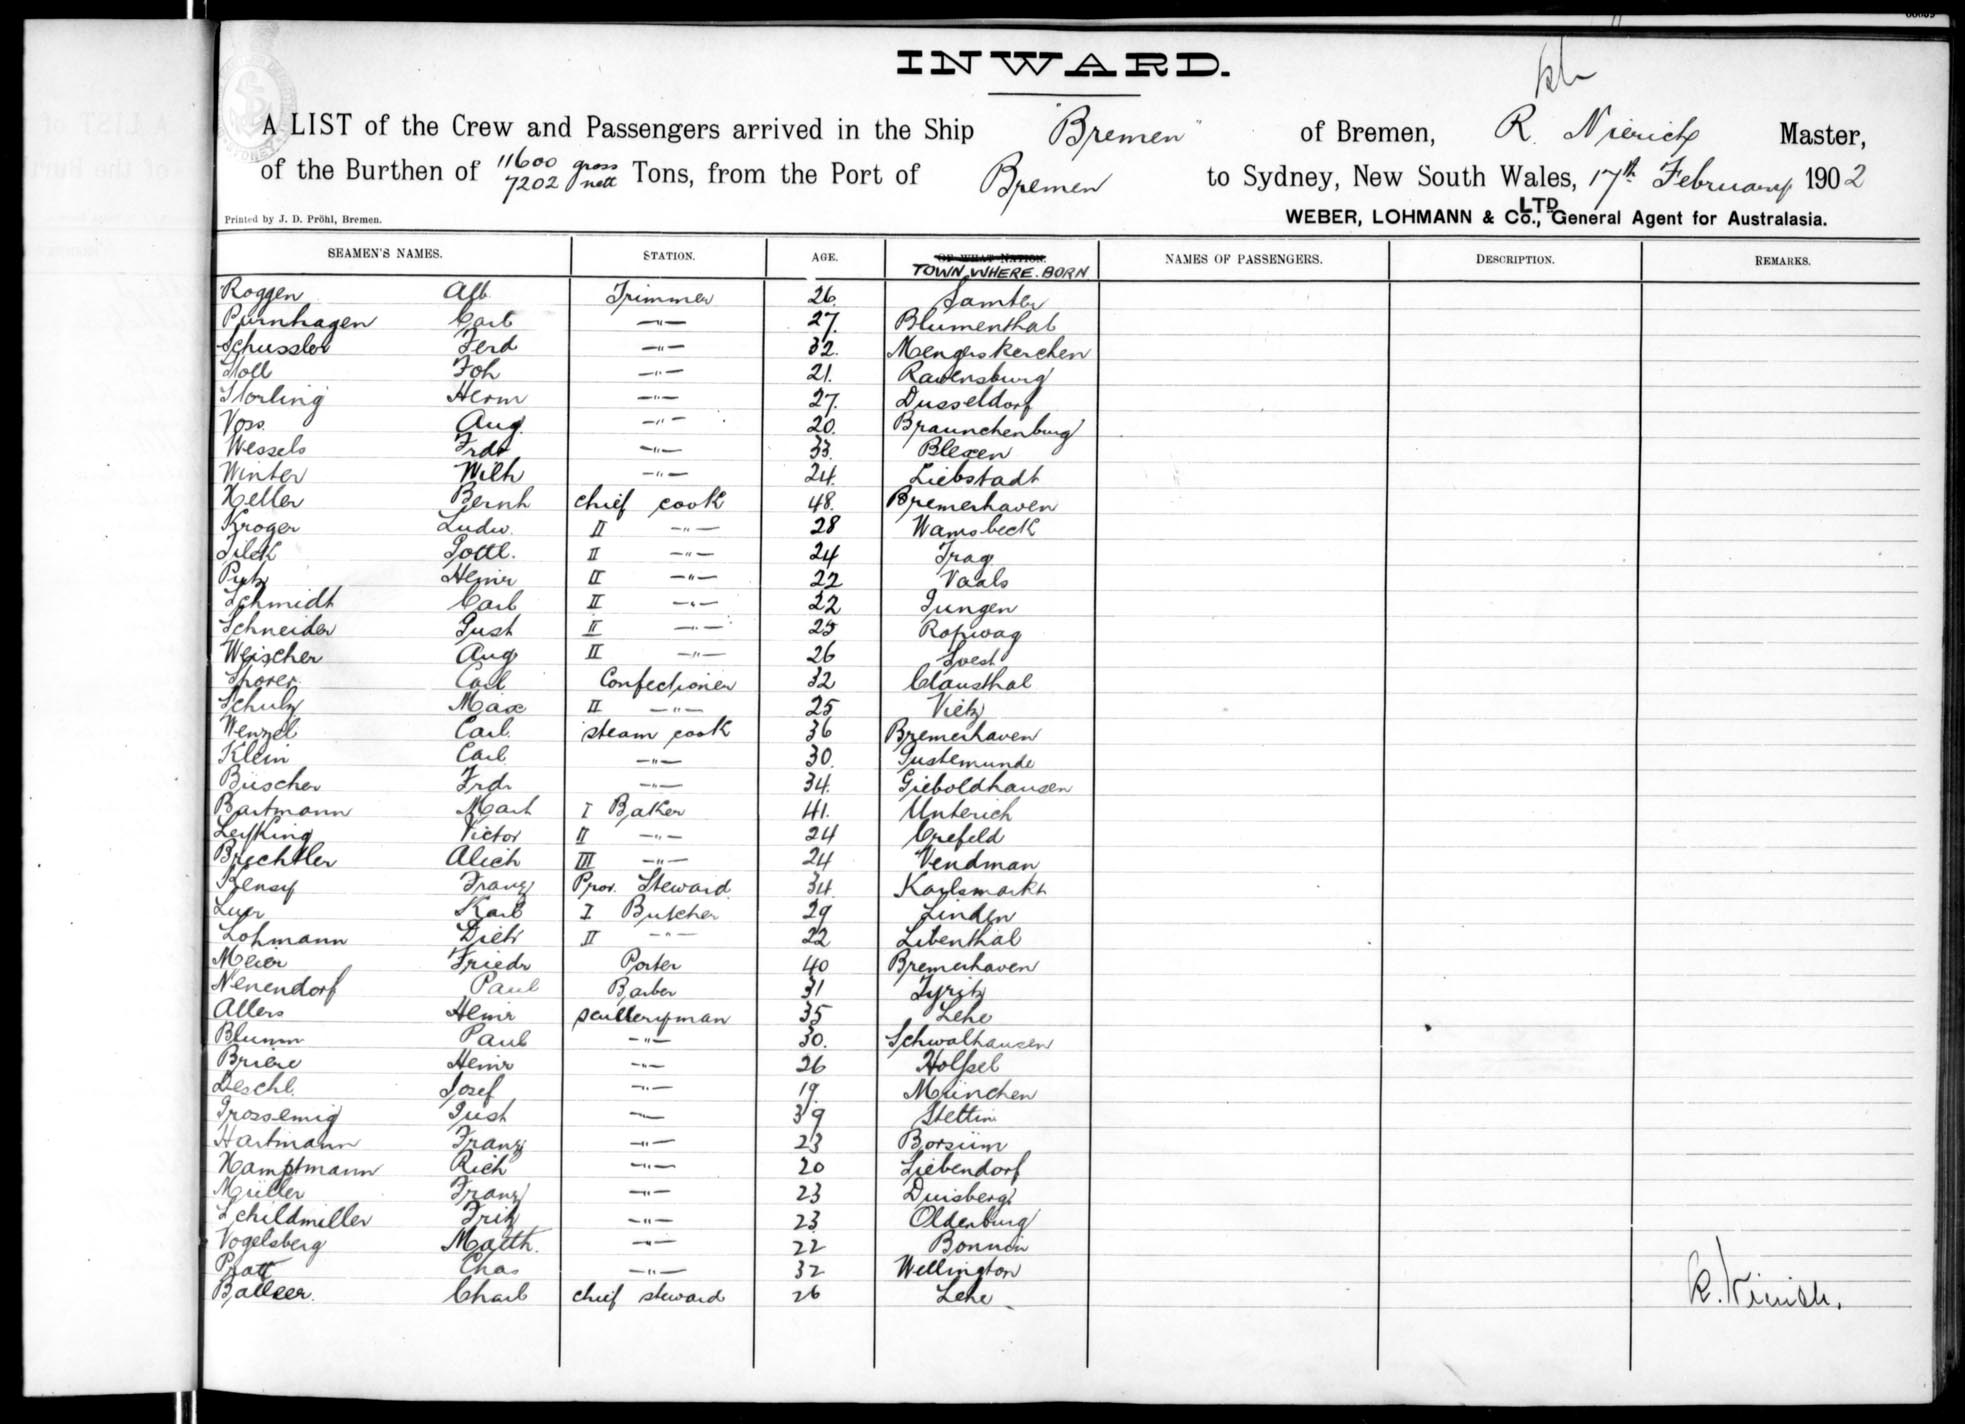 INWARD.
A LIST of the Crew and Passengers arrived in the Ship "Bremen" of Bremen, R. Nierich Master,
of the Burthen of 11600 gross 7202 nett Tons, from the Port of Bremen to Sydney, New South Wales, 17th February 1902
Printed by J. D. Pröhl, Bremen. WEBER, LOHMANN & Co., LTD General Agent for Australasia.
SEAMEN'S NAMES. STATION. AGE. OF WHAT NATION. NAMES OF PASSENGERS. DESCRIPTION. REMARKS.
TOWN WHERE BORN
Roggen Alb. Trimmer 26. Samter
Purnhagen Carl -"- 27. Blumenthal
Schussler Ferd -"- 32. Mengerskerchen
Stoll Joh -"- 21. Ravensburg
Storling Herm -"- 27. Dusseldorf
Voss. Aug. -"- 20. Braunchenburg
Wessels Frdr -"- 33. Blexen
Winter Wilh -"- 24. Liebstadt
Keller Bernh chief cook 48. Bremerhaven
Kroger Ludw. II -"- 28 Wamsbeck
Gottl. II -"- 24
Putz Heinr II -"- 22 Vaals
Schmidt Carl II -"- 22 Jungen
Schneider Gust II -"- 25
Weischer Aug II -"- 26 Soest
Sporer Carl Confectioner 32 Clausthal
Schulz Max II -"- 25 Vietz
Wenzel Carl. steam cook 36 Bremerhaven
Klein Carl -"- 30. Gustemunde
Büscher Frdr -"- 34. Gieboldhausen
Bartmann Mart I Baker 41. Unterich
Leyking Victor II -"- 24 Crefeld
Brechtler Alich III -"- 24 Vendman
Franz Prov. Steward 34. Karlsmarkt
Luer Karl I Butcher 29 Linden
Lohmann Dietr II -"- 22 Libenthal
Meier Friedr Porter 40 Bremerhaven
Nenendorf Paul Barber 31 Pyritz
Allers Heinr sculleryman 35 Lehe
Blumm Paul -"- 30. Schwalhausen
Briere Heinr -"- 26
Deschl. Josef -"- 19. München
Grossemig Gust -"- 39 Stettin
Hartmann Franz -"- 23 Borsüm
Hamptmann Rich -"- 20 Liebendorf
Müller Franz -"- 23 Duisberg
Schildmiller Fritz -"- 23 Oldenburg
Vogelsberg Matth. -"- 22
Pratt Chas -"- 32 Wellington
Balleer. Charl chief steward 26 Lehe
R. Nierich.